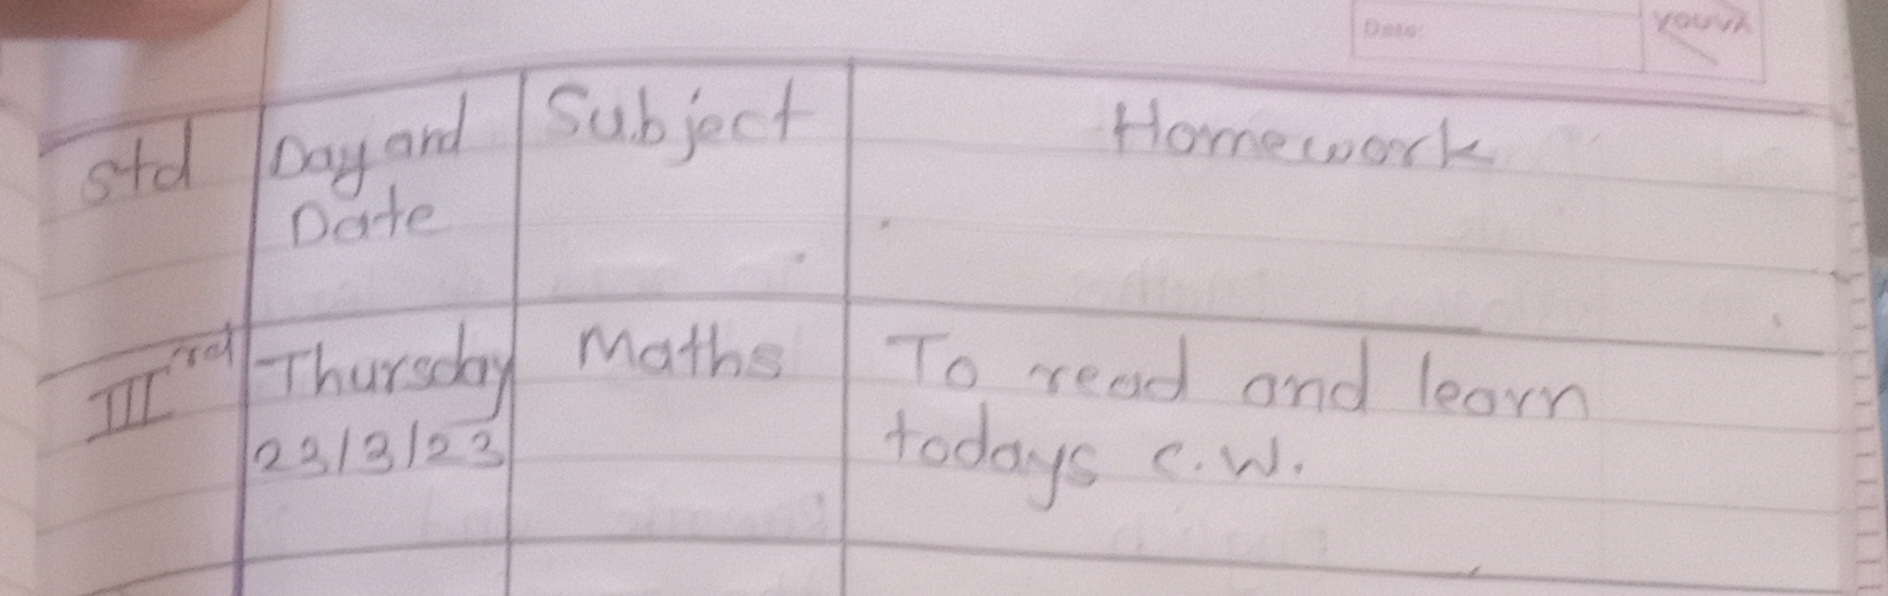 Date:
YOUVA
Std
Day and
Date
Subject
Homework
III rd
Thursday
23/3/23
Maths
To read and learn
todays c.w.